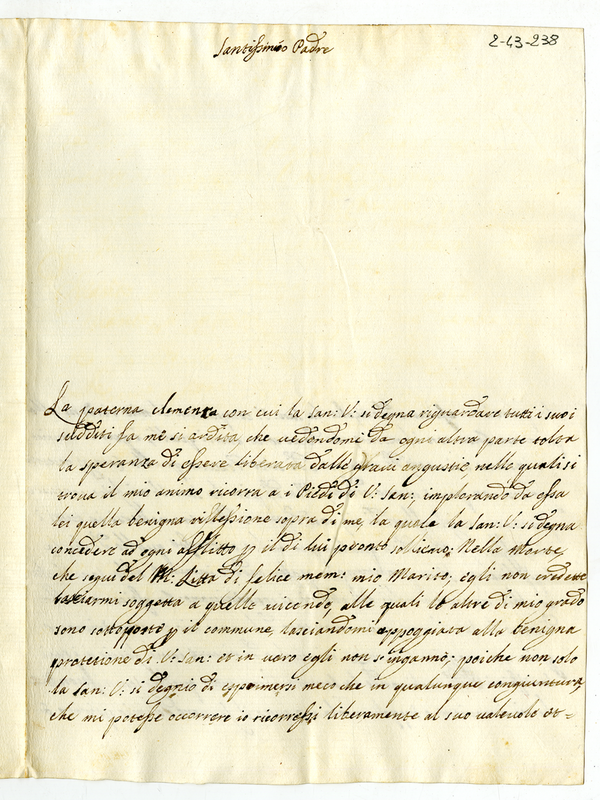 Santissimo Padre
2-43-238
La paterna clemenza con cui la San: V: si degna riguardare tutti i suoi
sudditi fa me si ardita, che vedendomi da ogni altra parte tolta
la speranza di essere liberata dalle gravi angustie nelle quali si
trova il mio animo ricorra a i Piedi di V: San:, implorando da essa
lei quella benigna riflessione sopra di me, la quale la San: V: si degna
concedere ad ogni afflitto p il di lui pronto sollievo. Nella morte,
che seguì del M: Litta di felice mem: mio Marito; egli non credette
lasciarmi soggetta a quelle vicende, alle quali le altre di mio grado
sono sottoposte p il commune, lasciandomi appoggiata alla benigna
protetione di V: San: et in vero egli non s'inganno; poiche non solo
la San: V: si degnio di esprimersi meco che in qualunque congiuntura,
che mi potesse occorrere io ricorressi liberamente al suo valevole et=